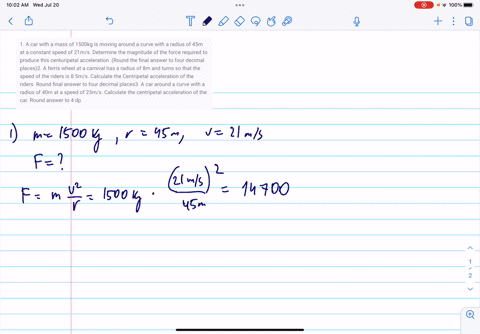 10:02 AM Wed Jul 20
100%
1. A car with a mass of 1500kg is moving around a curve with a radius of 45m
at a constant speed of 21m/s. Determine the magnitude of the force required to
produce this centripetal acceleration. (Round the final answer to four decimal
places)2. A ferris wheel at a carnival has a radius of 8m and turns so that the
speed of the riders is 8.5m/s. Calculate the Centripetal acceleration of the
riders. Round final answer to four decimal places3. A car around a curve with a
radius of 40m at a speed of 23m/s. Calculate the Centripetal acceleration of the
car. Round answer to 4 dp
1) m=1500 kg, r = 45m, v = 21 m/s
F=?
F = m v²/r = 1500 kg · (21 m/s)²/45m = 14700
1
2